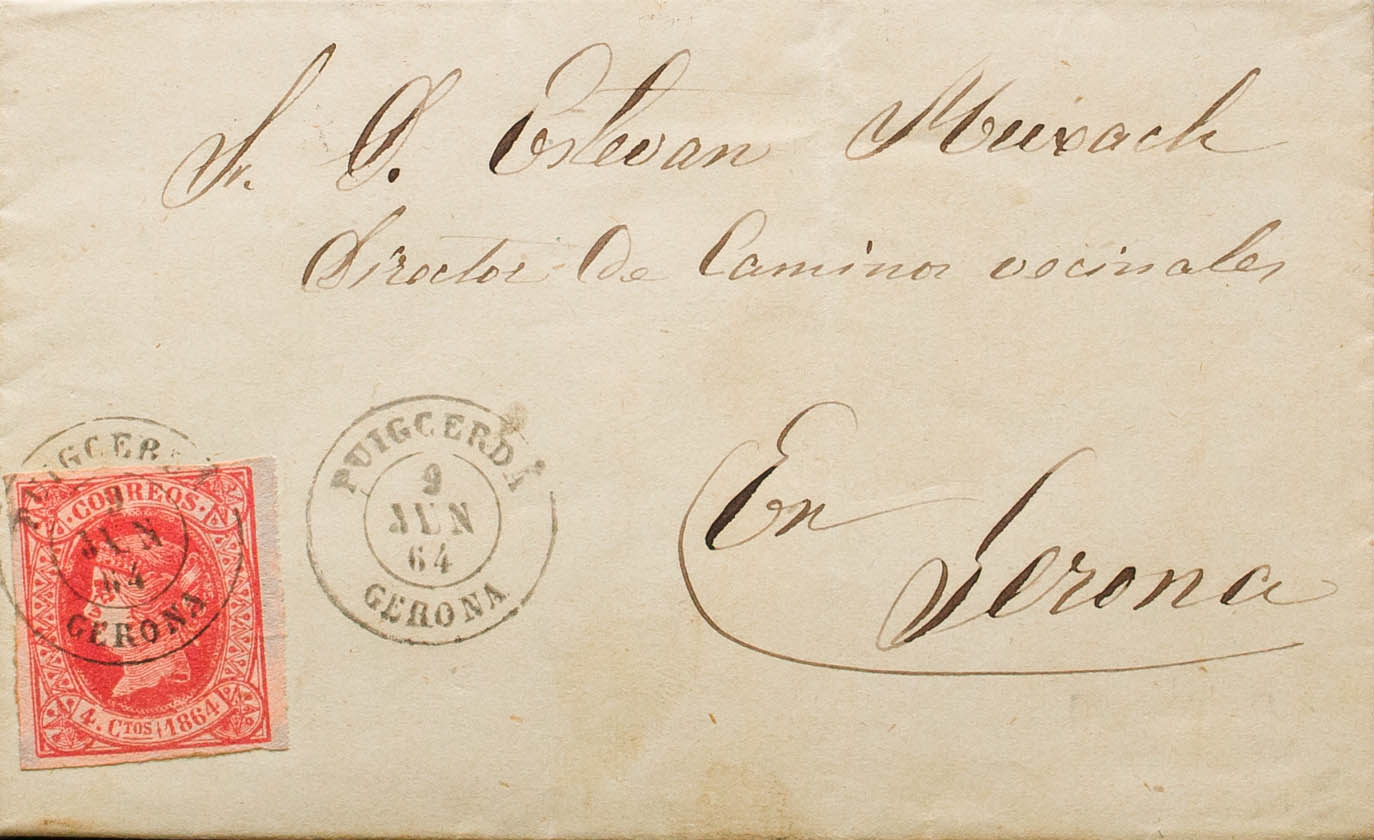 Sr. D. Estevan Muxach
Director de Caminos vecinales
En
Gerona
PUIGCERDÁ
9
JUN
64
GERONA
PUIGCERDÁ
9
JUN
64
GERONA
·CORREOS·
4. CTOS 1864